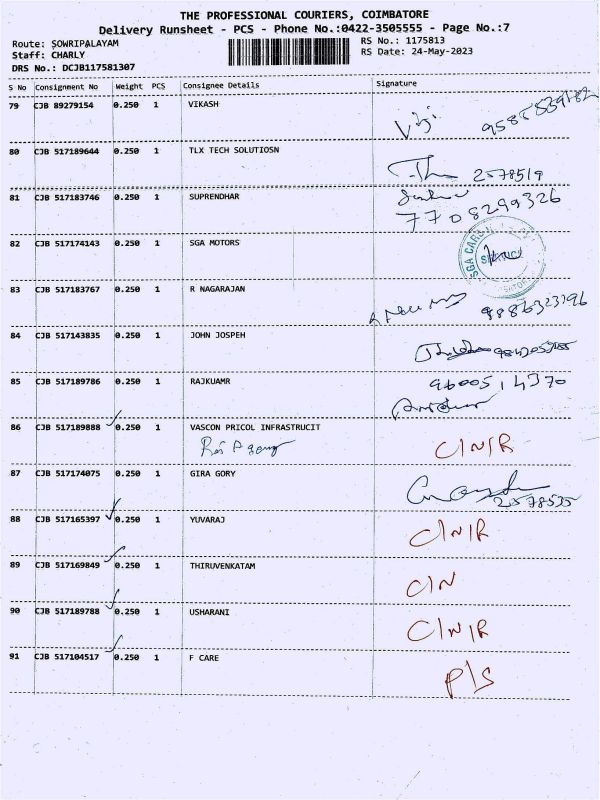 THE PROFESSIONAL COURIERS, COIMBATORE
Delivery Runsheet - PCS - Phone No.:0422-3505555 - Page No.:7
Route: SOWRIPALAYAM RS No.: 1175813
Staff: CHARLY RS Date: 24-May-2023
DRS No.: DCJB117581307
S No Consignment No Weight PCS Consignee Details Signature
79 CJB 89279154 0.250 1 VIKASH
Viji
80 CJB 517189644 0.250 1 TLX TECH SOLUTIOSN
2578519
81 CJB 517183746 0.250 1 SUPRENDHAR
7708299326
82 CJB 517174143 0.250 1 SGA MOTORS
SGA CARS
83 CJB 517183767 0.250 1 R NAGARAJAN
9886323296
84 CJB 517143835 0.250 1 JOHN JOSPEH
85 CJB 517189786 0.250 1 RAJKUAMR
9600514370
86 CJB 517189888 0.250 1 VASCON PRICOL INFRASTRUCIT
C/N/R
87 CJB 517174075 0.250 1 GIRA GORY
2578535
88 CJB 517165397 0.250 1 YUVARAJ
C/N/R
89 CJB 517169849 0.250 1 THIRUVENKATAM
C/N
90 CJB 517189788 0.250 1 USHARANI
C/N/R
91 CJB 517104517 0.250 1 F CARE
P/S